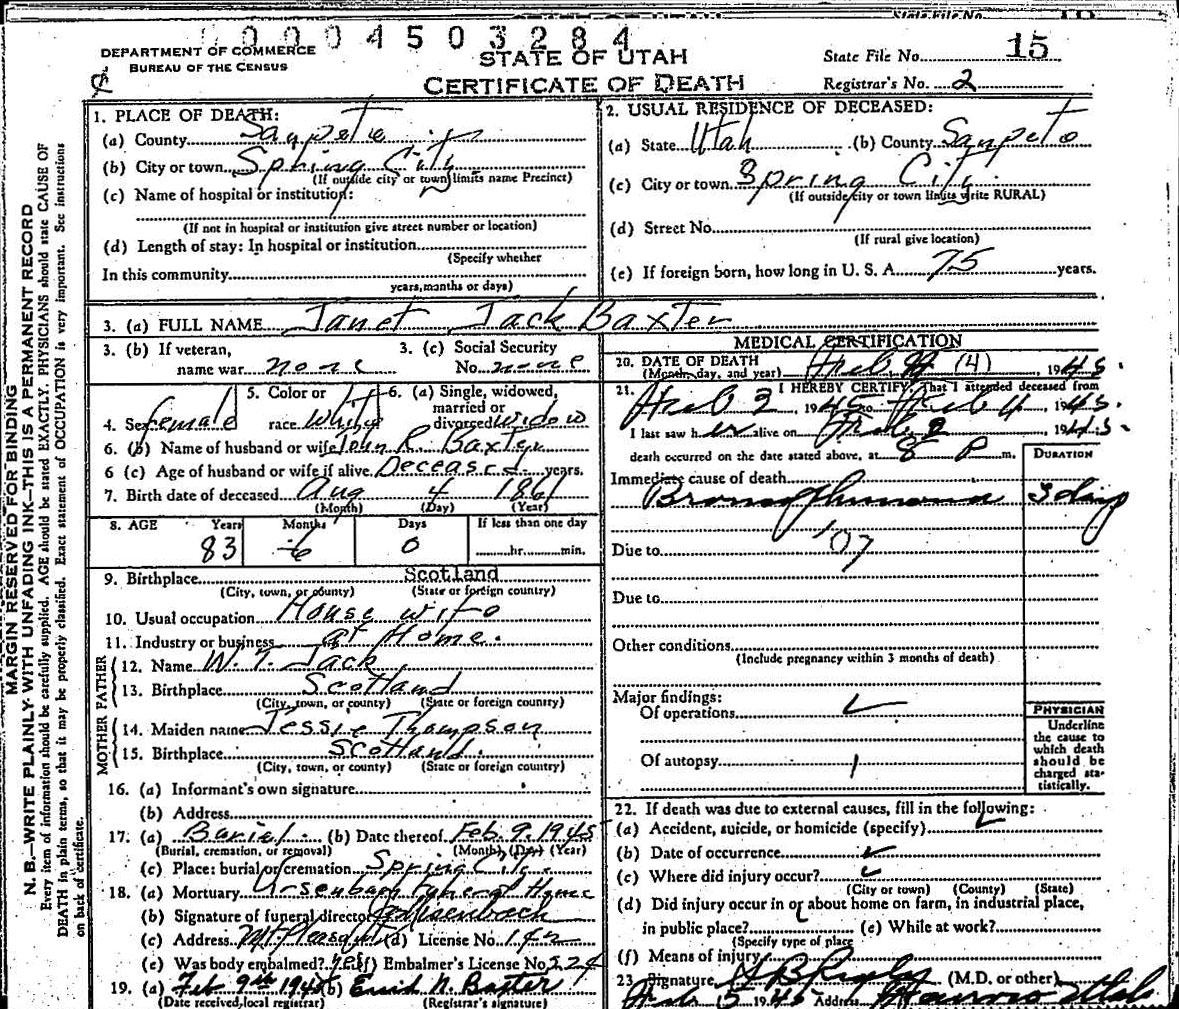 0004503284
DEPARTMENT OF COMMERCE
BUREAU OF THE CENSUS
STATE OF UTAH
CERTIFICATE OF DEATH
State File No. 15
Registrar's No. 2
MARGIN RESERVED FOR BINDING
N. B.—WRITE PLAINLY WITH UNFADING INK—THIS IS A PERMANENT RECORD
Every item of information should be carefully supplied. AGE should be stated EXACTLY. PHYSICIANS should state CAUSE OF
DEATH in plain terms, so that it may be properly classified. Exact statement of OCCUPATION is very important. See instructions
on back of certificate.
1. PLACE OF DEATH:
(a) County Sanpete
(b) City or town Spring City
(If outside city or town limits name Precinct)
(c) Name of hospital or institution:
(If not in hospital or institution give street number or location)
(d) Length of stay: In hospital or institution
(Specify whether
In this community
years, months or days)
2. USUAL RESIDENCE OF DECEASED:
(a) State Utah (b) County Sanpete
(c) City or town Spring City
(If outside city or town limits write RURAL)
(d) Street No.
(If rural give location)
(e) If foreign born, how long in U. S. A. 75 years.
3. (a) FULL NAME Janet Jack Baxter
3. (b) If veteran, name war none
3. (c) Social Security No. none
4. Sex female
5. Color or race White
6. (a) Single, widowed, married or divorced widow
6. (b) Name of husband or wife John R. Baxter
6 (c) Age of husband or wife if alive Deceased years.
7. Birth date of deceased Aug 4 1861
(Month) (Day) (Year)
8. AGE Years Months Days If less than one day
83 6 0 hr. min.
9. Birthplace Scotland
(City, town, or county) (State or foreign country)
10. Usual occupation House wife
11. Industry or business at Home.
FATHER
12. Name W. T. Jack
13. Birthplace Scotland
(City, town, or county) (State or foreign country)
MOTHER
14. Maiden name Jessie Thompson
15. Birthplace Scotland.
(City, town, or county) (State or foreign country)
16. (a) Informant's own signature
(b) Address
17. (a) Burial (b) Date thereof Feb. 9. 1945
(Burial, cremation, or removal) (Month) (Day) (Year)
(c) Place: burial or cremation Spring City.
18. (a) Mortuary Ursenbach Funeral Home
(b) Signature of funeral director Ursenbach
(c) Address Mt. Pleasant (d) License No.
(e) Was body embalmed? yes (f) Embalmer's License No. 224
19. (a) Feb 9th 1945 (b) Enid N. Baxter
(Date received, local registrar) (Registrar's signature)
MEDICAL CERTIFICATION
20. DATE OF DEATH
(Month, day, and year) Feb (4), 1945.
21. I HEREBY CERTIFY, That I attended deceased from
Feb 2, 1945 to Feb 4, 1945.
I last saw her alive on Feb 2, 1945.
death occurred on the date stated above, at 8 P m.
DURATION
Immediate cause of death
3 days
107
Due to
Due to
Other conditions
(Include pregnancy within 3 months of death)
Major findings:
Of operations
Of autopsy
PHYSICIAN
Underline
the cause to
which death
should be
charged sta-
tistically.
22. If death was due to external causes, fill in the following:
(a) Accident, suicide, or homicide (specify)
(b) Date of occurrence
(c) Where did injury occur?
(City or town) (County) (State)
(d) Did injury occur in or about home on farm, in industrial place,
in public place? (e) While at work?
(Specify type of place
(f) Means of injury
23. Signature (M.D. or other)
Feb 5 1945 Address Utah